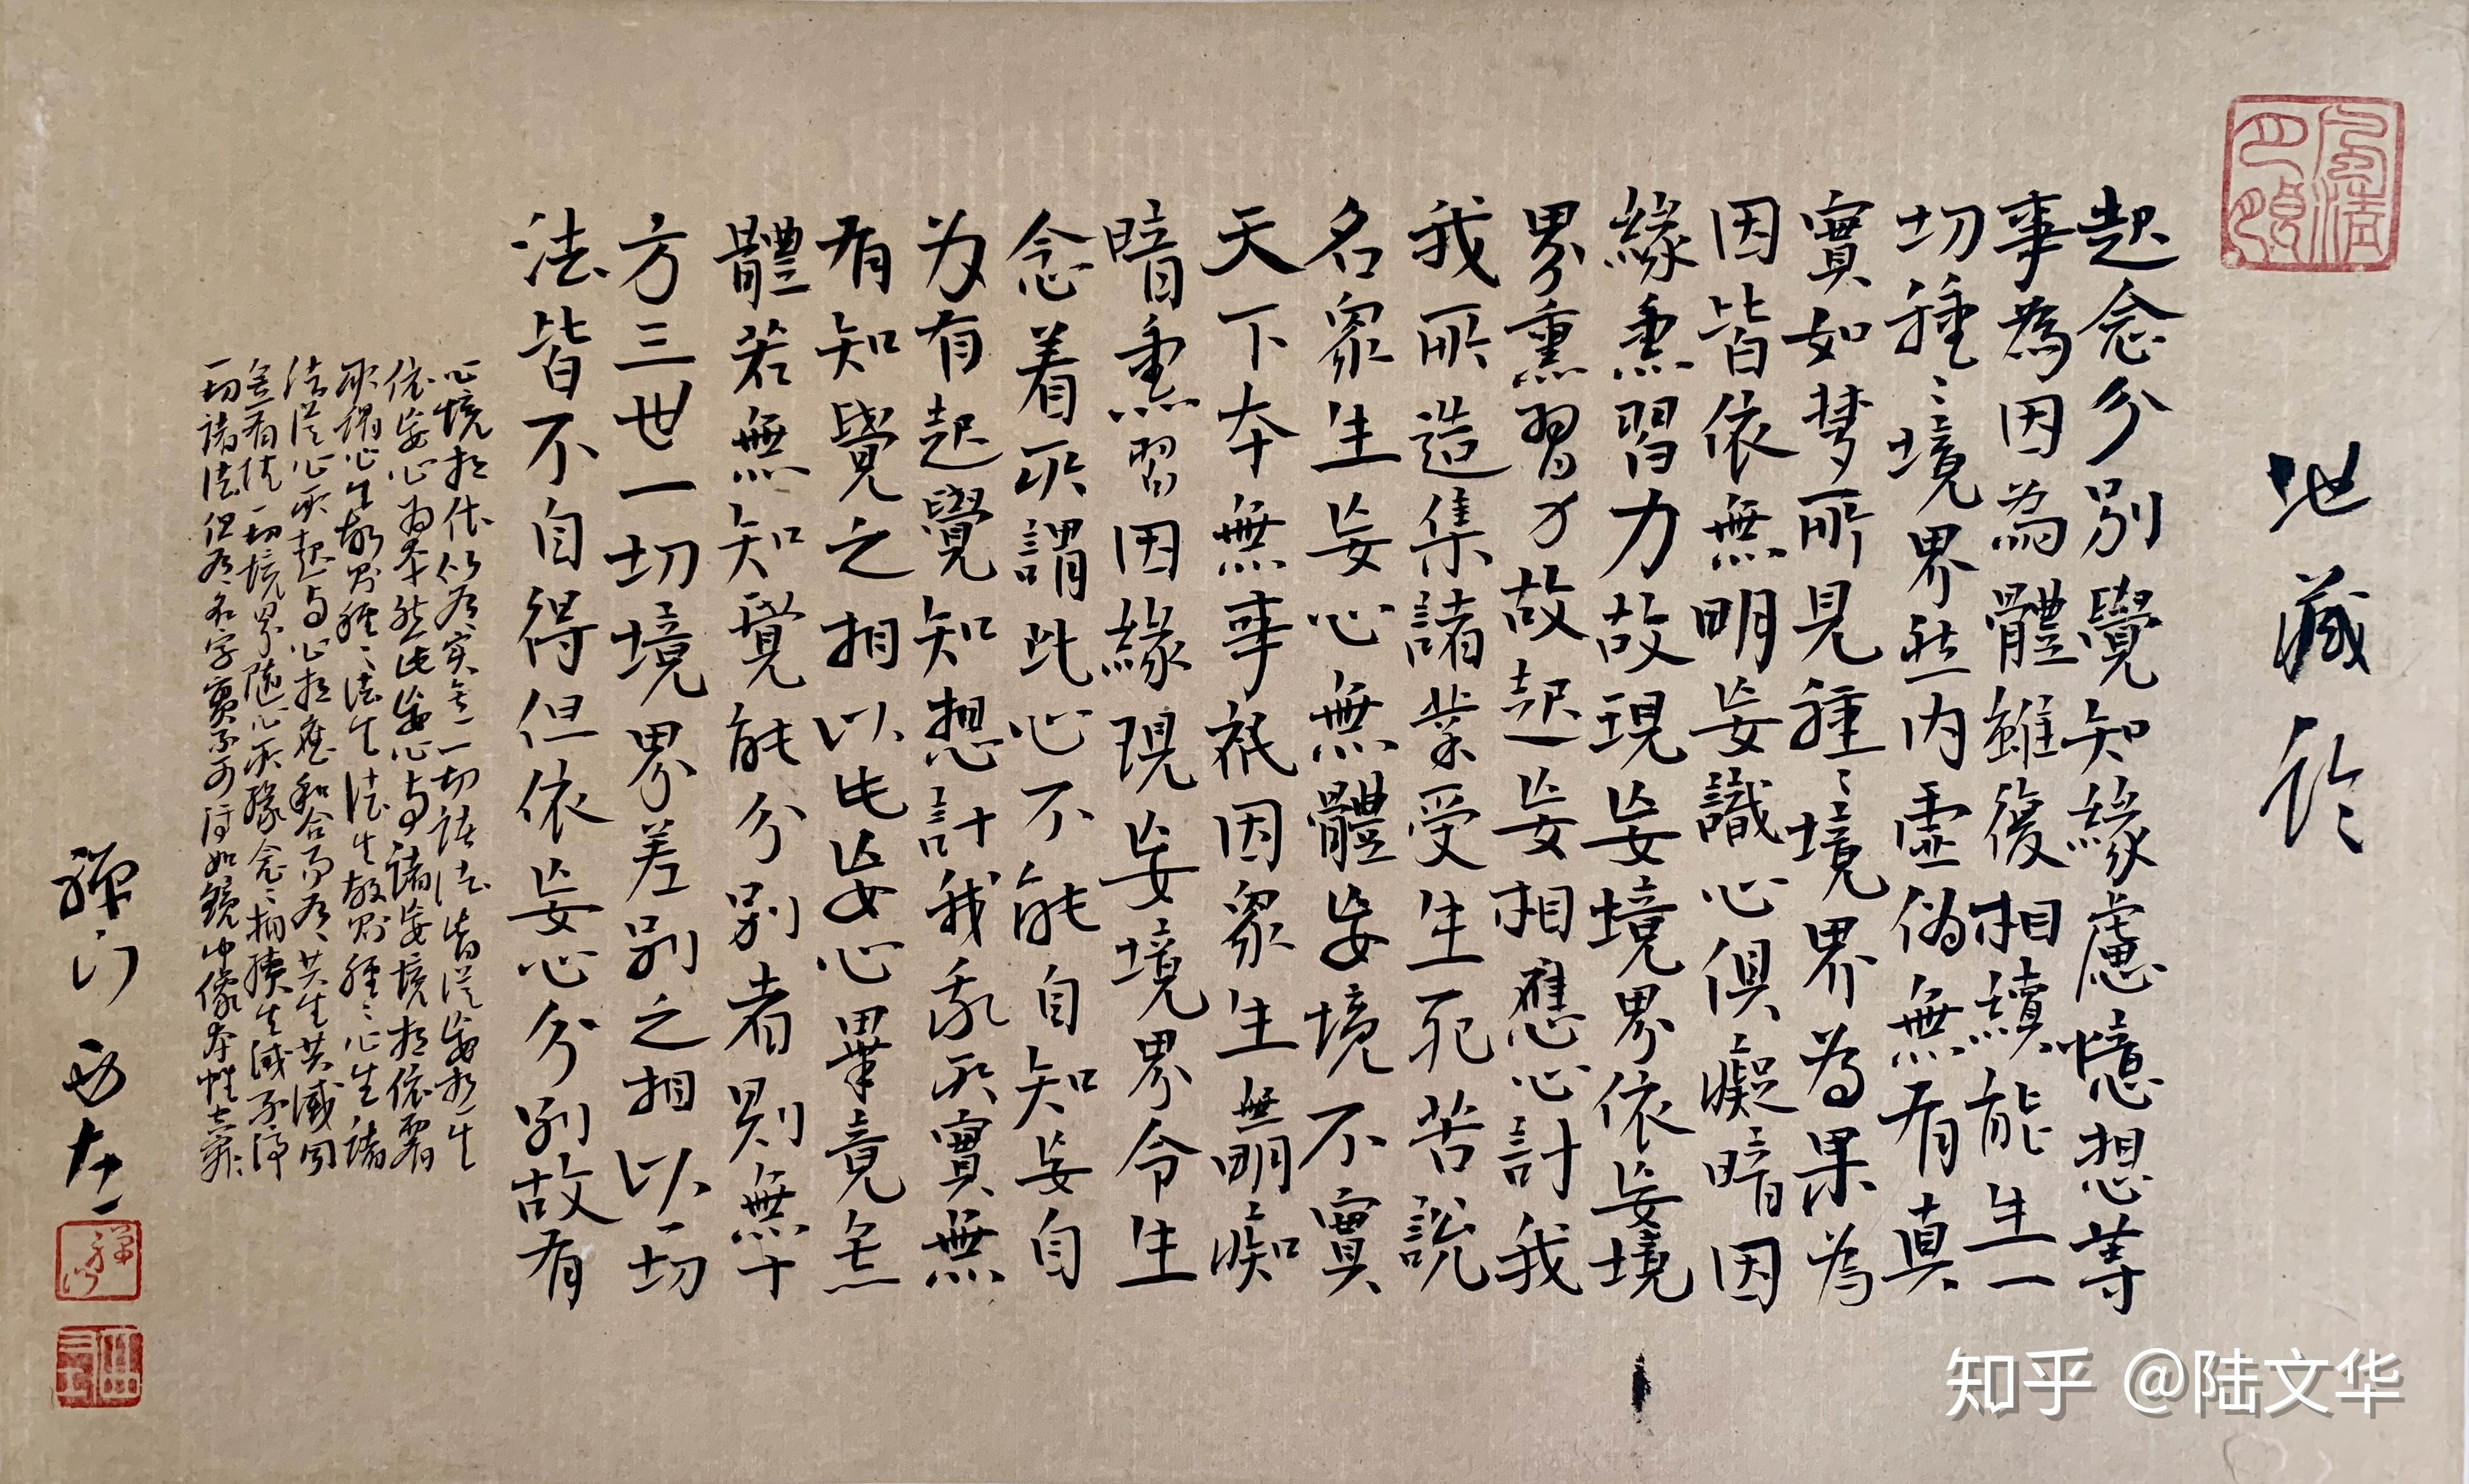 地藏於
起念分別覺知緣慮憶想等
事為因為體雖復相續能生一
切種〻境界然内虛偽無有真
實如夢所見種〻境界為果為
因皆依無明妄識心俱癡暗因
緣熏習力故現妄境界依妄境
界熏習力故起妄相應心計我
我所造集諸業受生死苦說
名眾生妄心無體妄境不實
天下本無事祇因眾生無明痴
暗熏習因緣現妄境界令生
念着所謂此心不能自知妄自
为有起覺知想計我我所實無
有知覺之相以此妄心畢竟無
體若無知覺能分別者則無十
方三世一切境界差別之相以一切
法皆不自得但依妄心分別故有
心境相依似有實無一切諸法皆從妄想生
依妄心為本然此妄心与諸妄境相依
所謂心生故則種〻法生法生故則種〻心生諸
法從心所起与心相應和合而有共生共滅同
無有住一切境界隨心所緣念〻相續生滅不停
一切諸法但有名字實不可得如鏡中像本性空寂
禪門
禪門
知乎 @陆文华